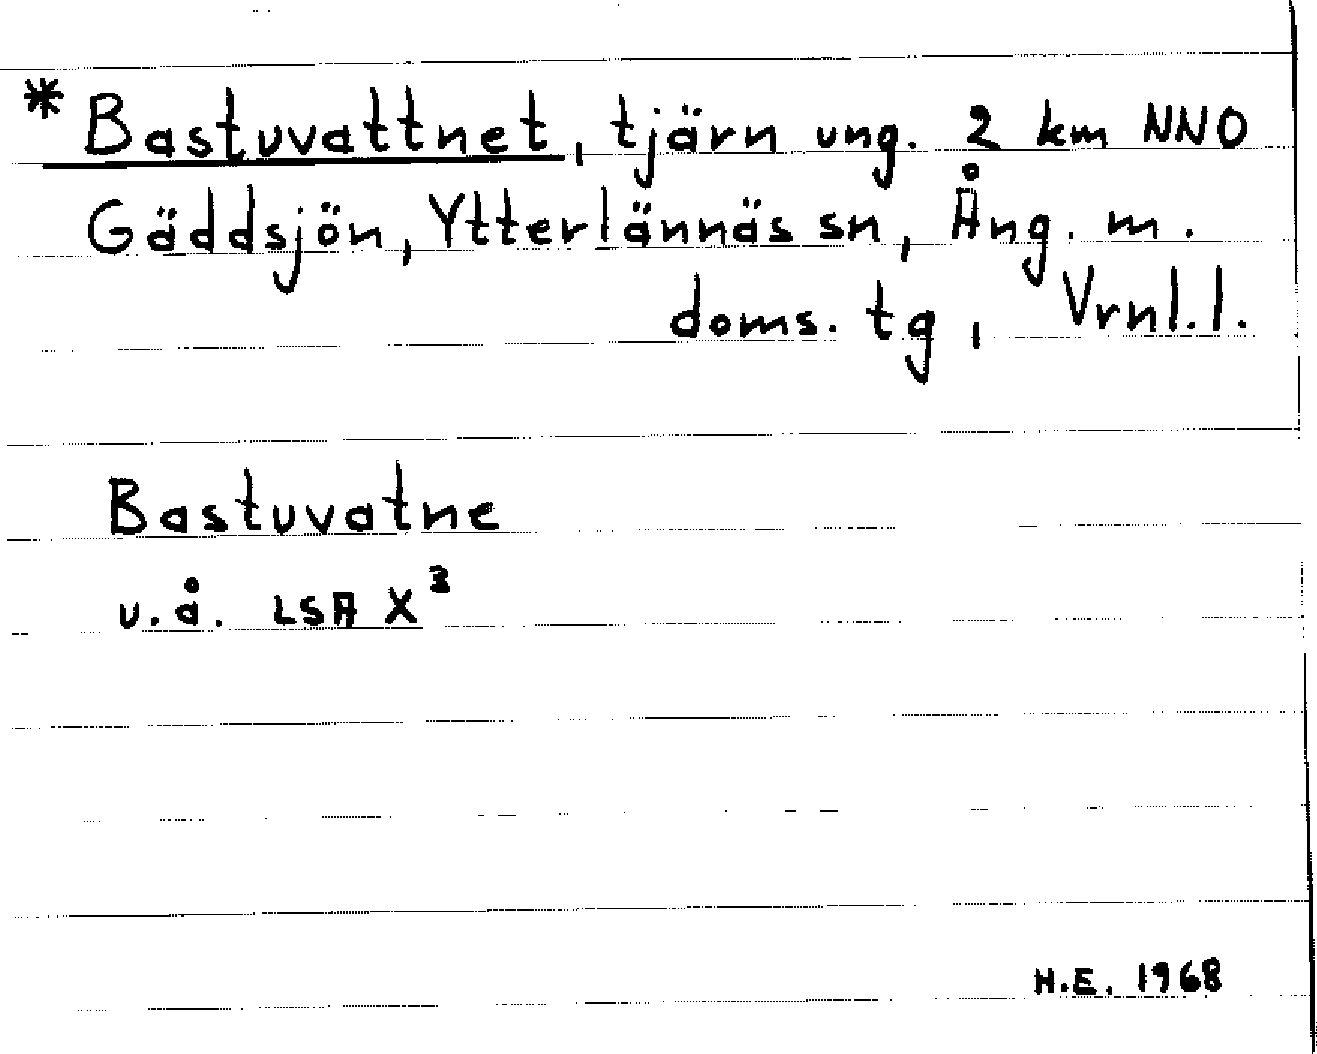 * Bastuvattnet, tjärn ung. 2 km NNO
Gäddsjön, Ytterlännäs sn, Ång. m.
doms. tg, Vrnl.l.
Bastuvatne
u.å. LSA X³
H.E. 1968